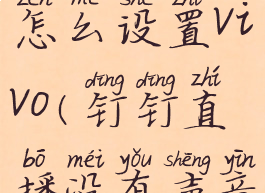 zěn me shè zhì
怎么设置Vi
dīng dīng zhí
vo(钉钉直
bō méi yǒu shēng yīn
播没有声音